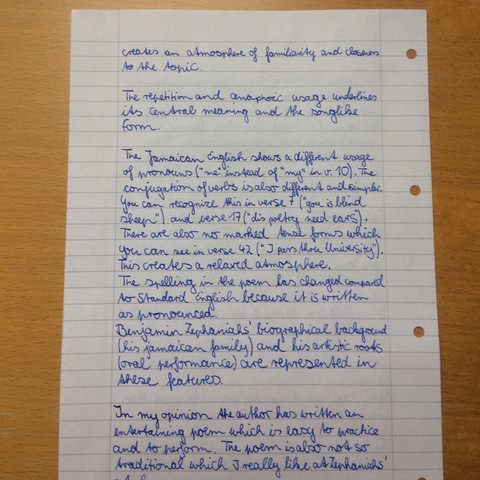 creates an atmosphere of familiarity and closeness
to the topic.
The repetition and anaphoric usage underlines
its central meaning and the songlike
form.
The Jamaican English shows a different usage
of pronouns ("me" instead of "my" in v. 10). The
conjugation of verbs is also different and simpler.
You can recognize this in verse 7 ("you is blind
sheep") and verse 17 ("dis poetry need ears").
There are also no marked tense forms which
you can see in verse 42 ("I pass thru University").
This creates a relaxed atmosphere.
The spelling in the poem has changed compared
to Standard English because it is written
as pronounced.
Benjamin Zephaniahs' biographical background
(his jamaican family) and his artistic roots
(oral performance) are represented in
these features.
In my opinion the author has written an
entertaining poem which is easy to practice
and to perform. The poem is also not so
traditional which I really like at Zephaniahs'